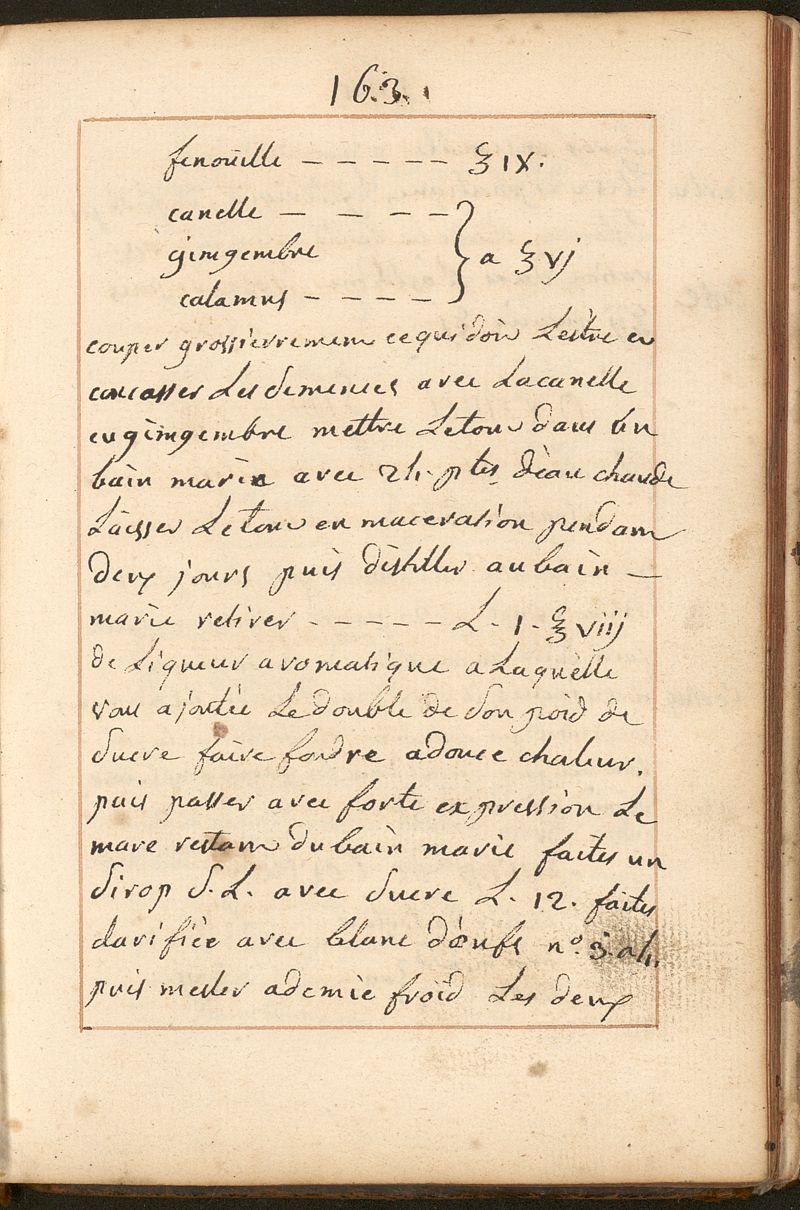 163.
fenoüille – – – – – ℥ IX.
canelle – – – –
gimgembre } a ℥ vj
calamus – – – –
couper grossierremem ce qui doiv Lestre ev
concasser Les semences avec La canelle
ev gimgembre mettre Le touv dans un
bain marie avec 24. ptes d'eau chaude
Läisser Le touv en maceration pendam
deux jours puis distiller au bain –
marie retirer – – – – – L. 1. ℥ viij
de Liqueur aromatique a Laquelle
vous ajoutée Le double de son poid de
sucre faire fondre a douce chaleur.
puis passer avec forte expression Le
marc restam du bain marie faites un
sirop S. L. avec sucre L. 12. faites
clarifiée avec blanc d'œufs nº. 3. a4.
puis mesler a demie froid Les deux